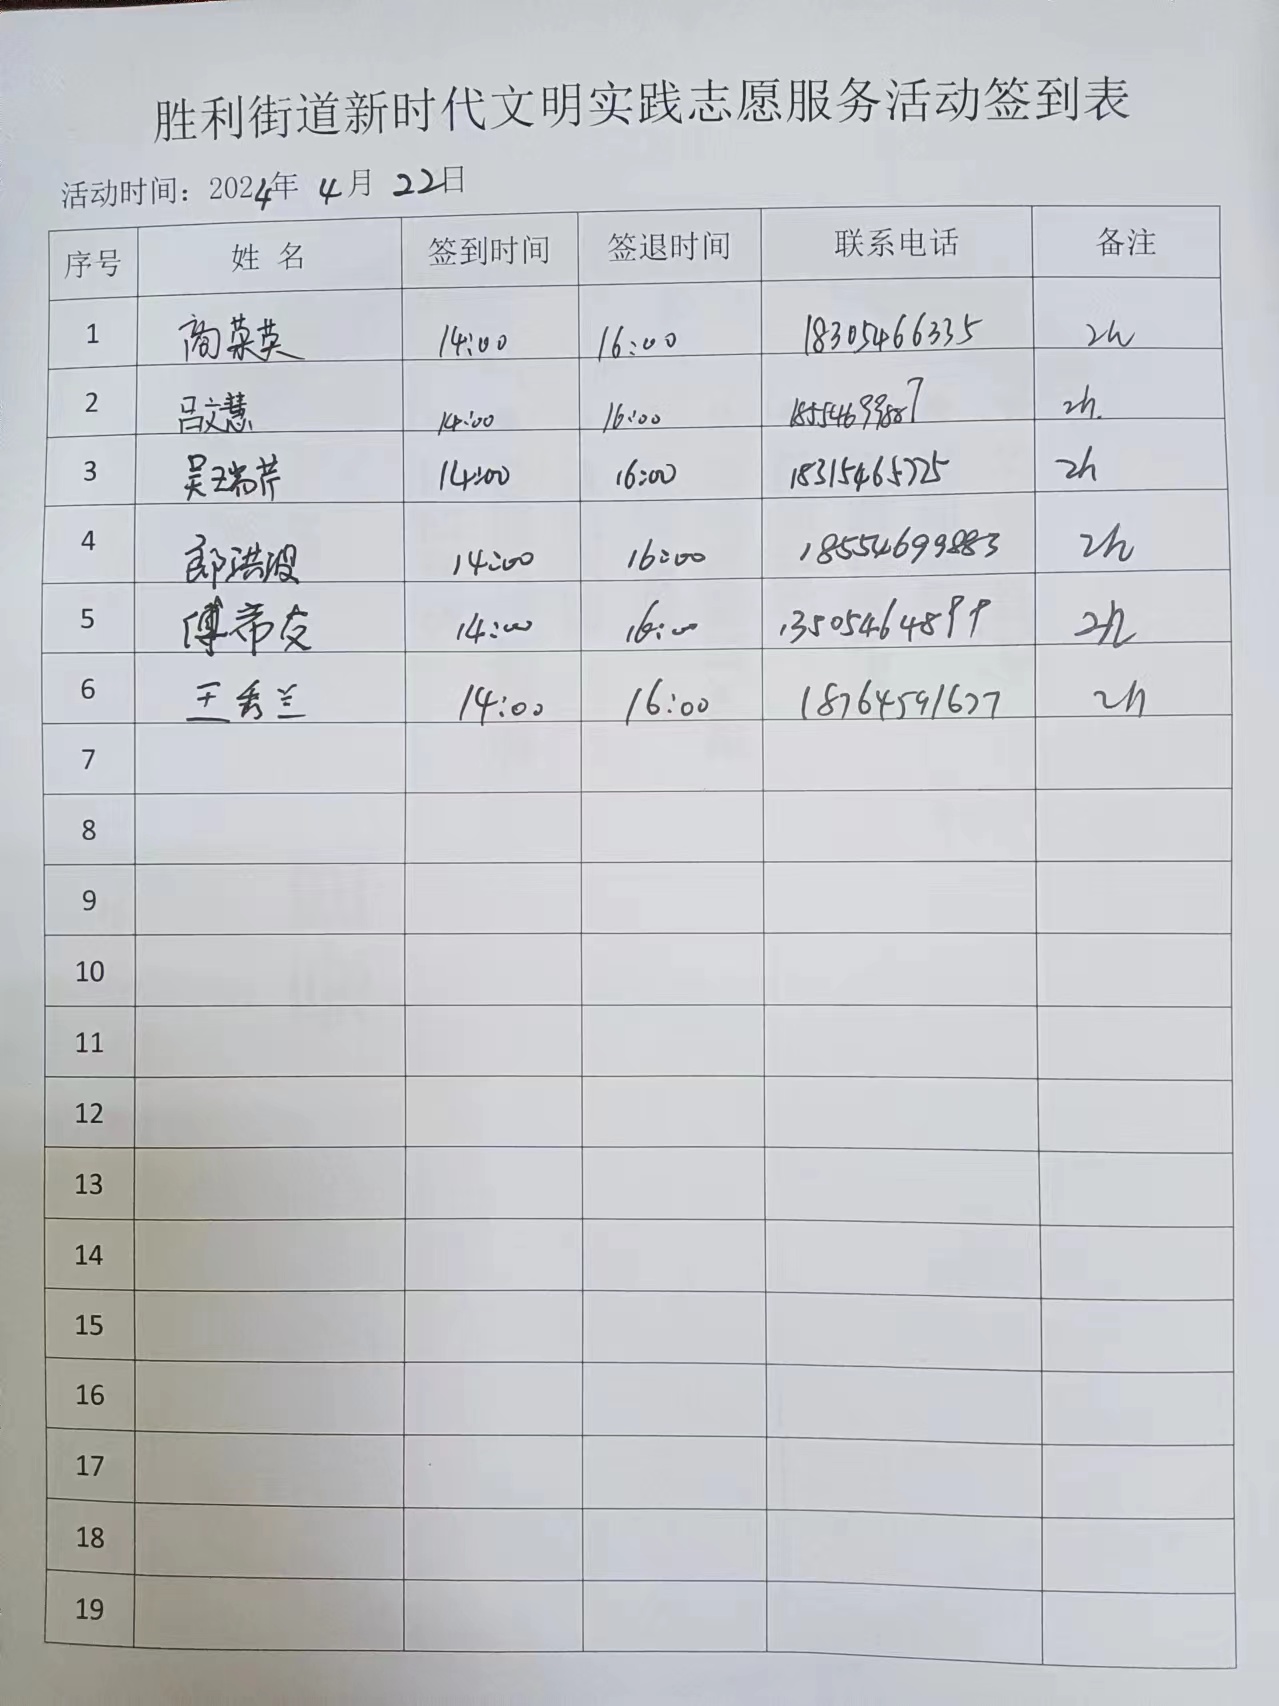 胜利街道新时代文明实践志愿服务活动签到表
活动时间：2024年 4月 22日
序号 姓 名 签到时间 签退时间 联系电话 备注
1 商荣英 14:00 16:00 18305466335 2h
2 吕文慧 14:00 16:00 18554699887 2h.
3 吴瑞芹 14:00 16:00 18315465725 2h
4 郎洪波 14:00 16:00 18554699883 2h
5 傅希友 14:00 16:00 13505464899 2h
6 王秀兰 14:00 16:00 18764591627 2h
7
8
9
10
11
12
13
14
15
16
17
18
19